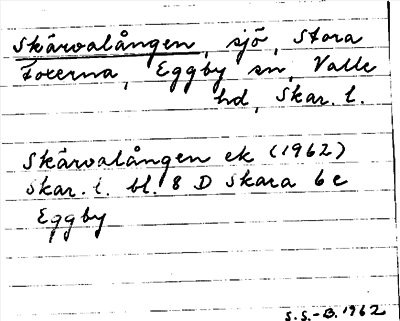 Skärvalången, sjö, Stora
Foxerna, Eggby sn, Valle
hd, Skar. l.
Skärvalången ek (1962)
Skar. l. bl. 8 D Skara 6 e
Eggby
S.S.-B. 1962